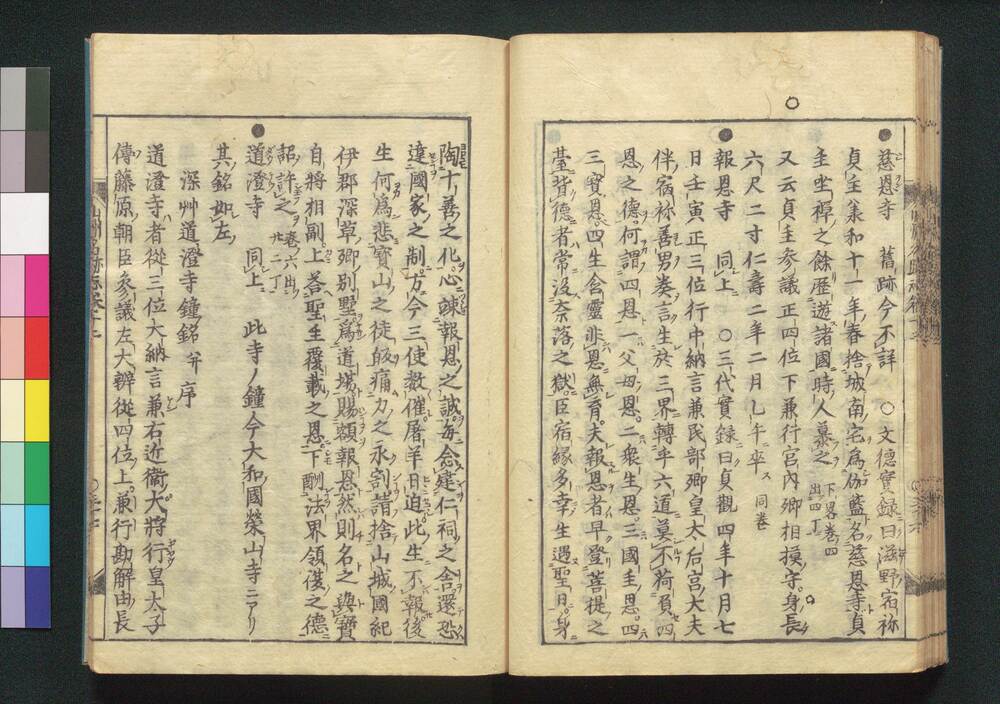 慈恩寺　舊跡今不詳　○文德實録曰滋野宿祢
貞主承和十一年春捨城南宅為伽藍名慈恩寺貞
主坐禪之餘歴遊諸國時人慕之下畧巻四出四丁
又云貞主参議正四位下兼行宮内卿相摸守身長
六尺二寸仁壽二年二月乙午卒ス同巻
報恩寺　同上　○三代實録曰貞觀四年十月七
日壬寅正三位行中納言兼民部卿皇太后宮大夫
伴宿祢善男奏言生於三界轉乎六道莫不荷負四
恩之德何謂四恩一父母恩二衆生恩三國主恩四
三寳恩四生含靈非恩無育夫報恩者早登菩提之
臺背德者常没奈落之獄臣宿縁多幸生遇聖日身
陶十善之化心諌報恩之誠毎念建仁祠之舎還恐
違國家之制方今三使数催屠羊日迫此生不報後
生何為悲寳山之徒皈痛力之永割謹捨山城國紀
伊郡深草卿別墅為道場賜額報恩然則名之與寳
自將相副上荅聖主覆載之恩下酬法界領復之德
詔許之巻六出廿二丁
道澄寺　同上　此寺ノ鐘今大和國榮山寺ニアリ
其銘如左
深艸道澄寺鐘銘并序
道澄寺者從三位大納言兼右近衛大將行皇太子
傳藤原朝臣参議左大辨從四位上兼行勘解由長